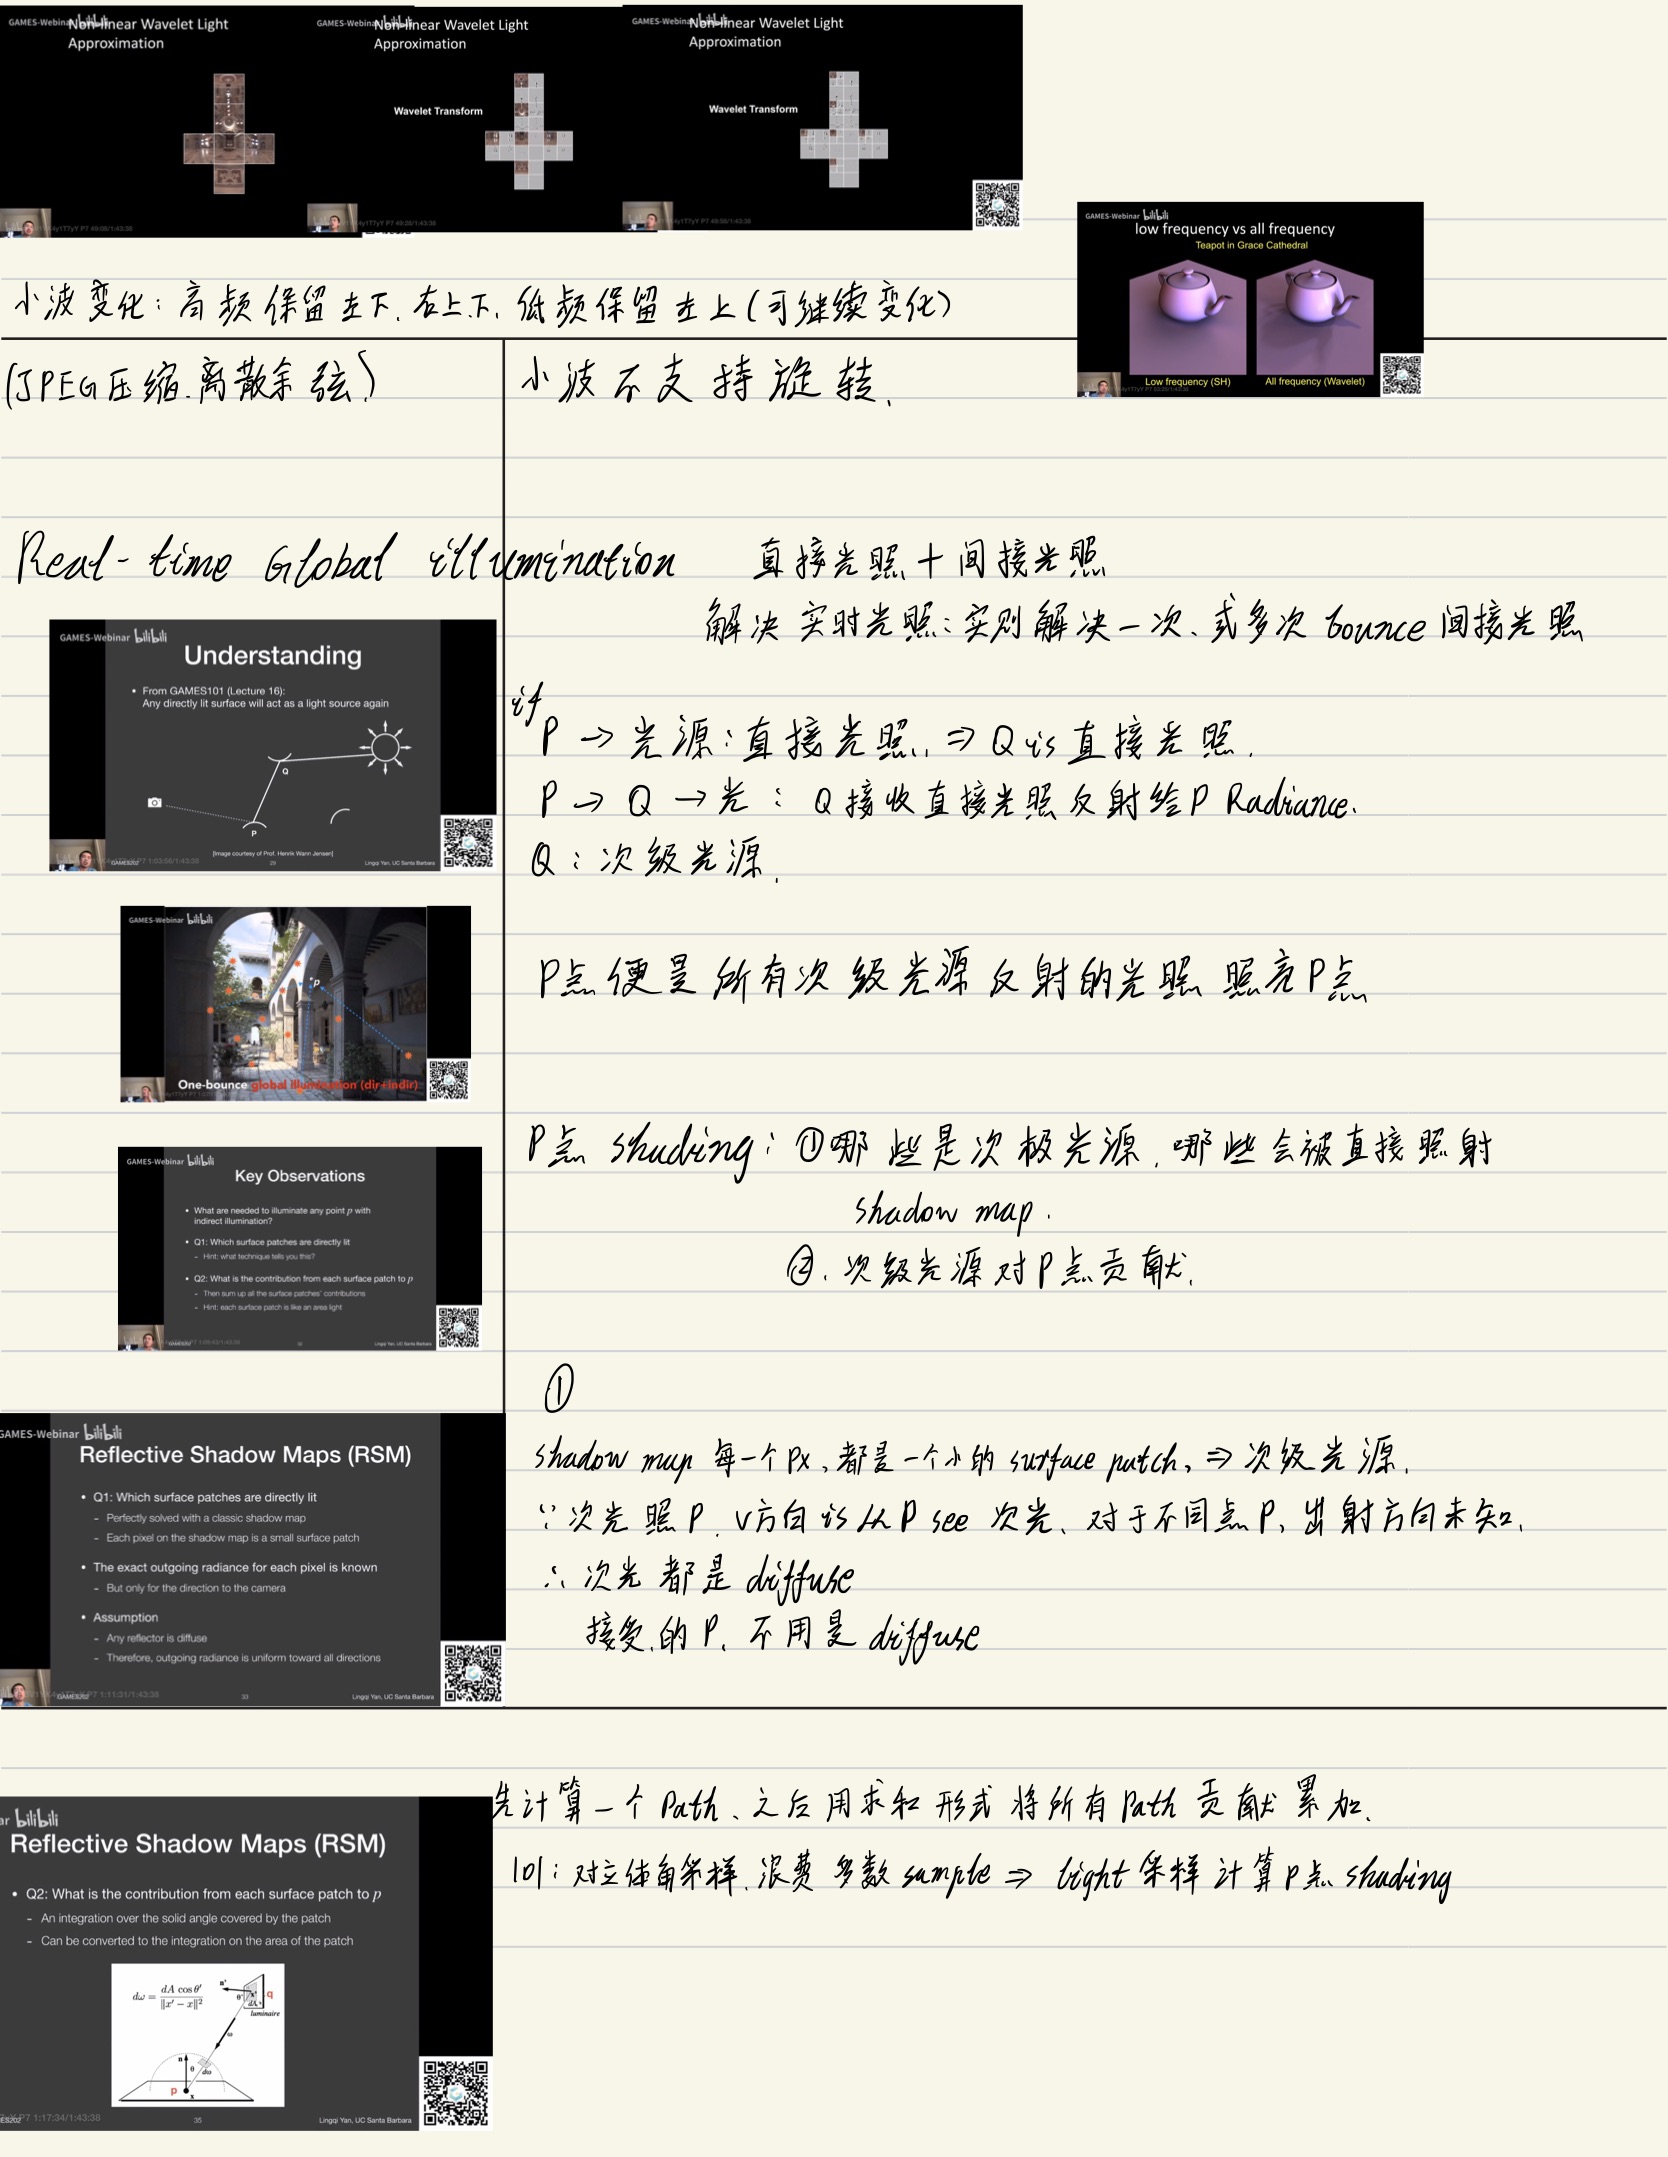 GAMES-Webinar bilibili
Non-linear Wavelet Light
Approximation
GAMES-Webinar bilibili
Non-linear Wavelet Light
Approximation
Wavelet Transform
GAMES-Webinar bilibili
Non-linear Wavelet Light
Approximation
Wavelet Transform
GAMES-Webinar bilibili
low frequency vs all frequency
Teapot in Grace Cathedral
Low frequency (SH)
All frequency (Wavelet)
小波变化：高频保留左下、右上下，低频保留左上(可继续变化)
(JPEG压缩.离散余弦)
小波不支持旋转.
Real-time Global illumination 直接光照+间接光照
解决实时光照：实则解决一次、或多次 bounce 间接光照
GAMES-Webinar bilibili
Understanding
• From GAMES101 (Lecture 16):
Any directly lit surface will act as a light source again
Q
P
[Image courtesy of Prof. Henrik Wann Jensen]
GAMES202 29 Lingqi Yan, UC Santa Barbara
if
P → 光源：直接光照 ⇒ Q is 直接光照.
P → Q → 光： Q接收直接光照反射给P Radiance.
Q：次级光源.
GAMES-Webinar bilibili
P
One-bounce global illumination (dir+indir)
P点便是所有次级光源反射的光照 照亮P点
GAMES-Webinar bilibili
Key Observations
• What are needed to illuminate any point p with
indirect illumination?
• Q1: Which surface patches are directly lit
- Hint: what technique tells you this?
• Q2: What is the contribution from each surface patch to p
- Then sum up all the surface patches' contributions
- Hint: each surface patch is like an area light
GAMES202 Lingqi Yan, UC Santa Barbara
P点 shading：①哪些是次极光源，哪些会被直接照射
shadow map.
②. 次级光源对P点贡献.
GAMES-Webinar bilibili
Reflective Shadow Maps (RSM)
• Q1: Which surface patches are directly lit
- Perfectly solved with a classic shadow map
- Each pixel on the shadow map is a small surface patch
• The exact outgoing radiance for each pixel is known
- But only for the direction to the camera
• Assumption
- Any reflector is diffuse
- Therefore, outgoing radiance is uniform toward all directions
GAMES202 33 Lingqi Yan, UC Santa Barbara
①
shadow map 每一个 Px, 都是一个小的 surface patch, ⇒ 次级光源.
∵次光照P, v方向 is 从P see 次光、对于不同点P, 出射方向未知.
∴次光都是 diffuse
接受的P、不用是 diffuse
ar bilibili
Reflective Shadow Maps (RSM)
• Q2: What is the contribution from each surface patch to p
- An integration over the solid angle covered by the patch
- Can be converted to the integration on the area of the patch
dω = dA cos θ' / ||x' − x||²
n' θ' x' dA q
luminaire
ω
n θ dω
p x
ES202 P7 1:17:34/1:43:38 35 Lingqi Yan, UC Santa Barbara
先计算一个 Path、之后用求和形式将所有 Path 贡献累加.
101：对立体角采样, 浪费多数 sample ⇒ light 采样计算P点 shading